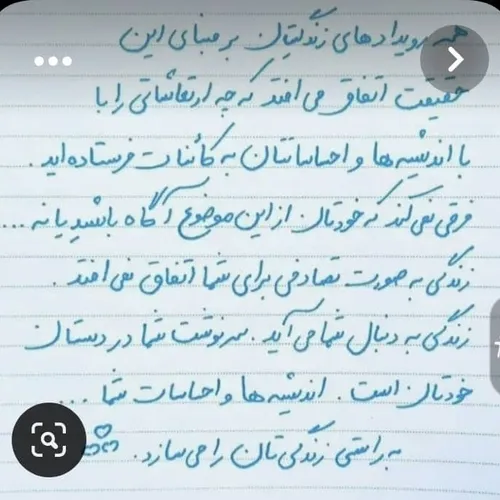 همه رویدادهای زندگیتان بر مبنای این
حقیقت اتفاق می افتد که چه ارتعاشاتی را با
با اندیشه ها و احساساتتان به کائنات فرستاده اید .
فرقی نمی کند که خودتان از این موضوع آگاه باشید یا نه ...
زندگی به صورت تصادفی برای شما اتفاق نمی افتد .
زندگی به دنبال شما می آید . سرنوشت شما در دستان
خودتان است . اندیشه ها و احساسات شما ...
به راستی زندگی تان را می سازد .